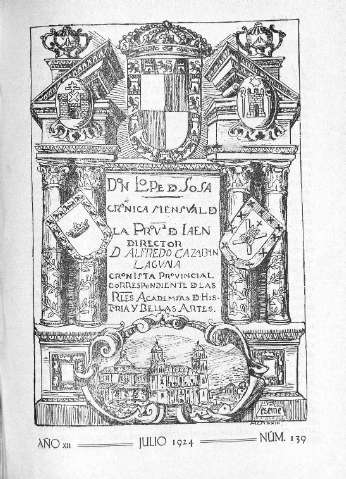 DON LOPE D SOSA
CRÓNICA MENSVAL D
LA PROVA D JAEN
DIRECTOR
D ALFREDO CAZABAN
LAGUNA
CRONISTA PROVINCIAL
CORRESPONDIENTE D LAS
RLES ACADEMIAS D HIS-
TORIA Y BELLAS ARTES.
AÑO XII JULIO 1924 NÚM. 139